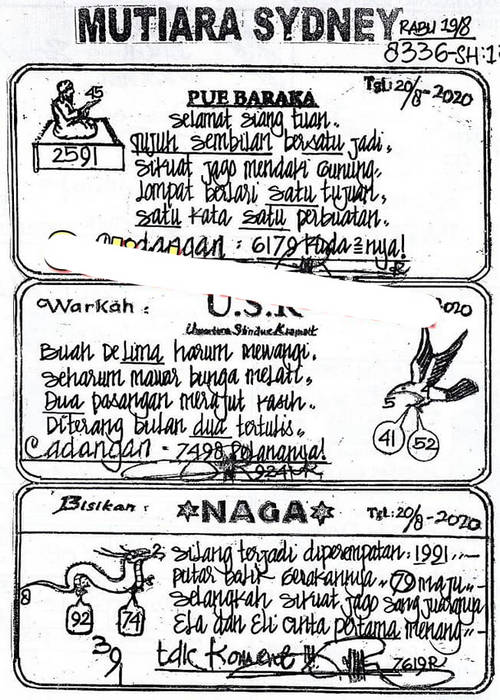 MUTIARA SYDNEY
RABU 19/8
8336-SH:1
Tgl: 20/8-2020
45
2591
PUE BARAKA
Selamat siang tuan..
Tujuh Sembilan bersatu jadi,
Sikuat jago mendaki Gunung..
Lompat berlari satu tujuan,
satu kata satu perbuatan..
6179 Kuda-2nya!
Warkah :
U.S.K
2020
Buah De lima harum mewangi,
Seharum mawar bunga melati,
Dua pasangan merajut kasih..
Diterang bulan dua tertulis..
Cadangan - 7498
9241-R
5
41 52
Bisikan :
NAGA
Tgl: 20/8-2020
Silang terjadi diperempatan : 1991
putar balik Gerakannya 79 maju
Selangkah sikuat jago sang juaranya
Ela dan Eli cinta pertama menang
tdk Koment !!
7619R
2
8
92 74
39